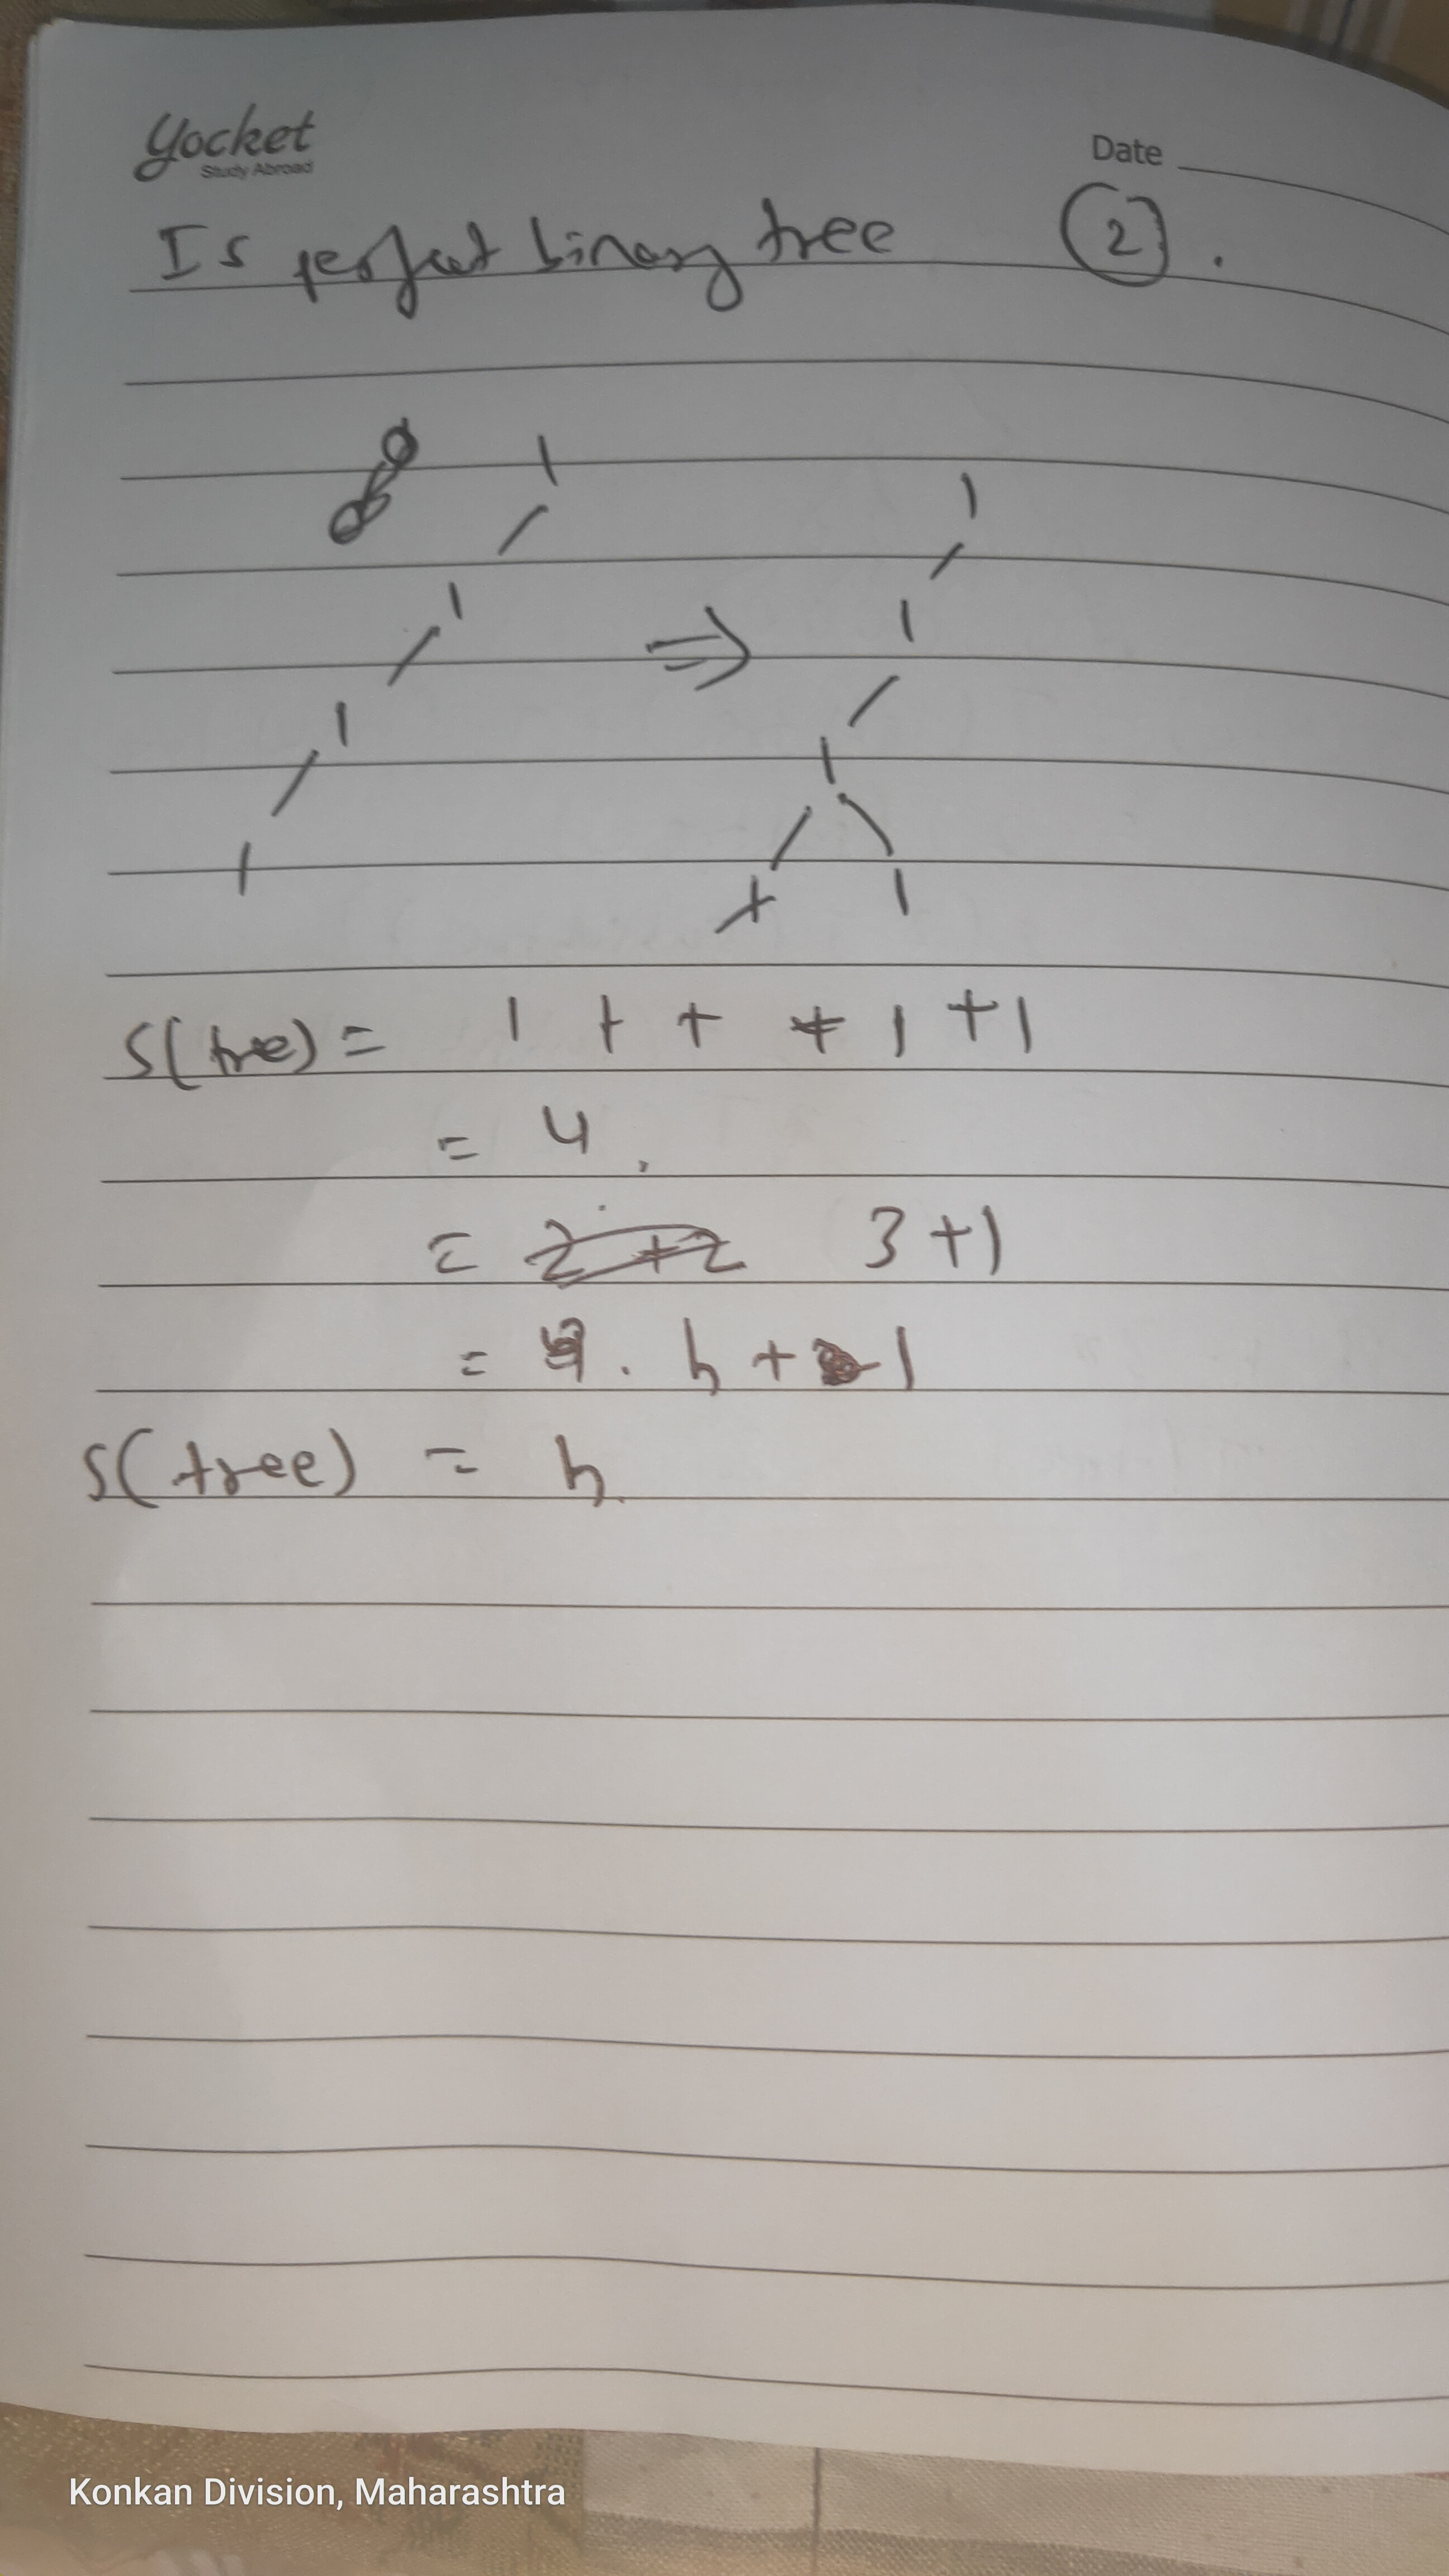 Yocket
Study Abroad
Date
Is perfect binary tree (2).
1 1
1 ⇒ 1
1 1
1 + 1
S(tree) = 1 + + + 1 + 1
= 4
= 2 + 2 3 + 1
= . h + 1
S(tree) = h.
Konkan Division, Maharashtra